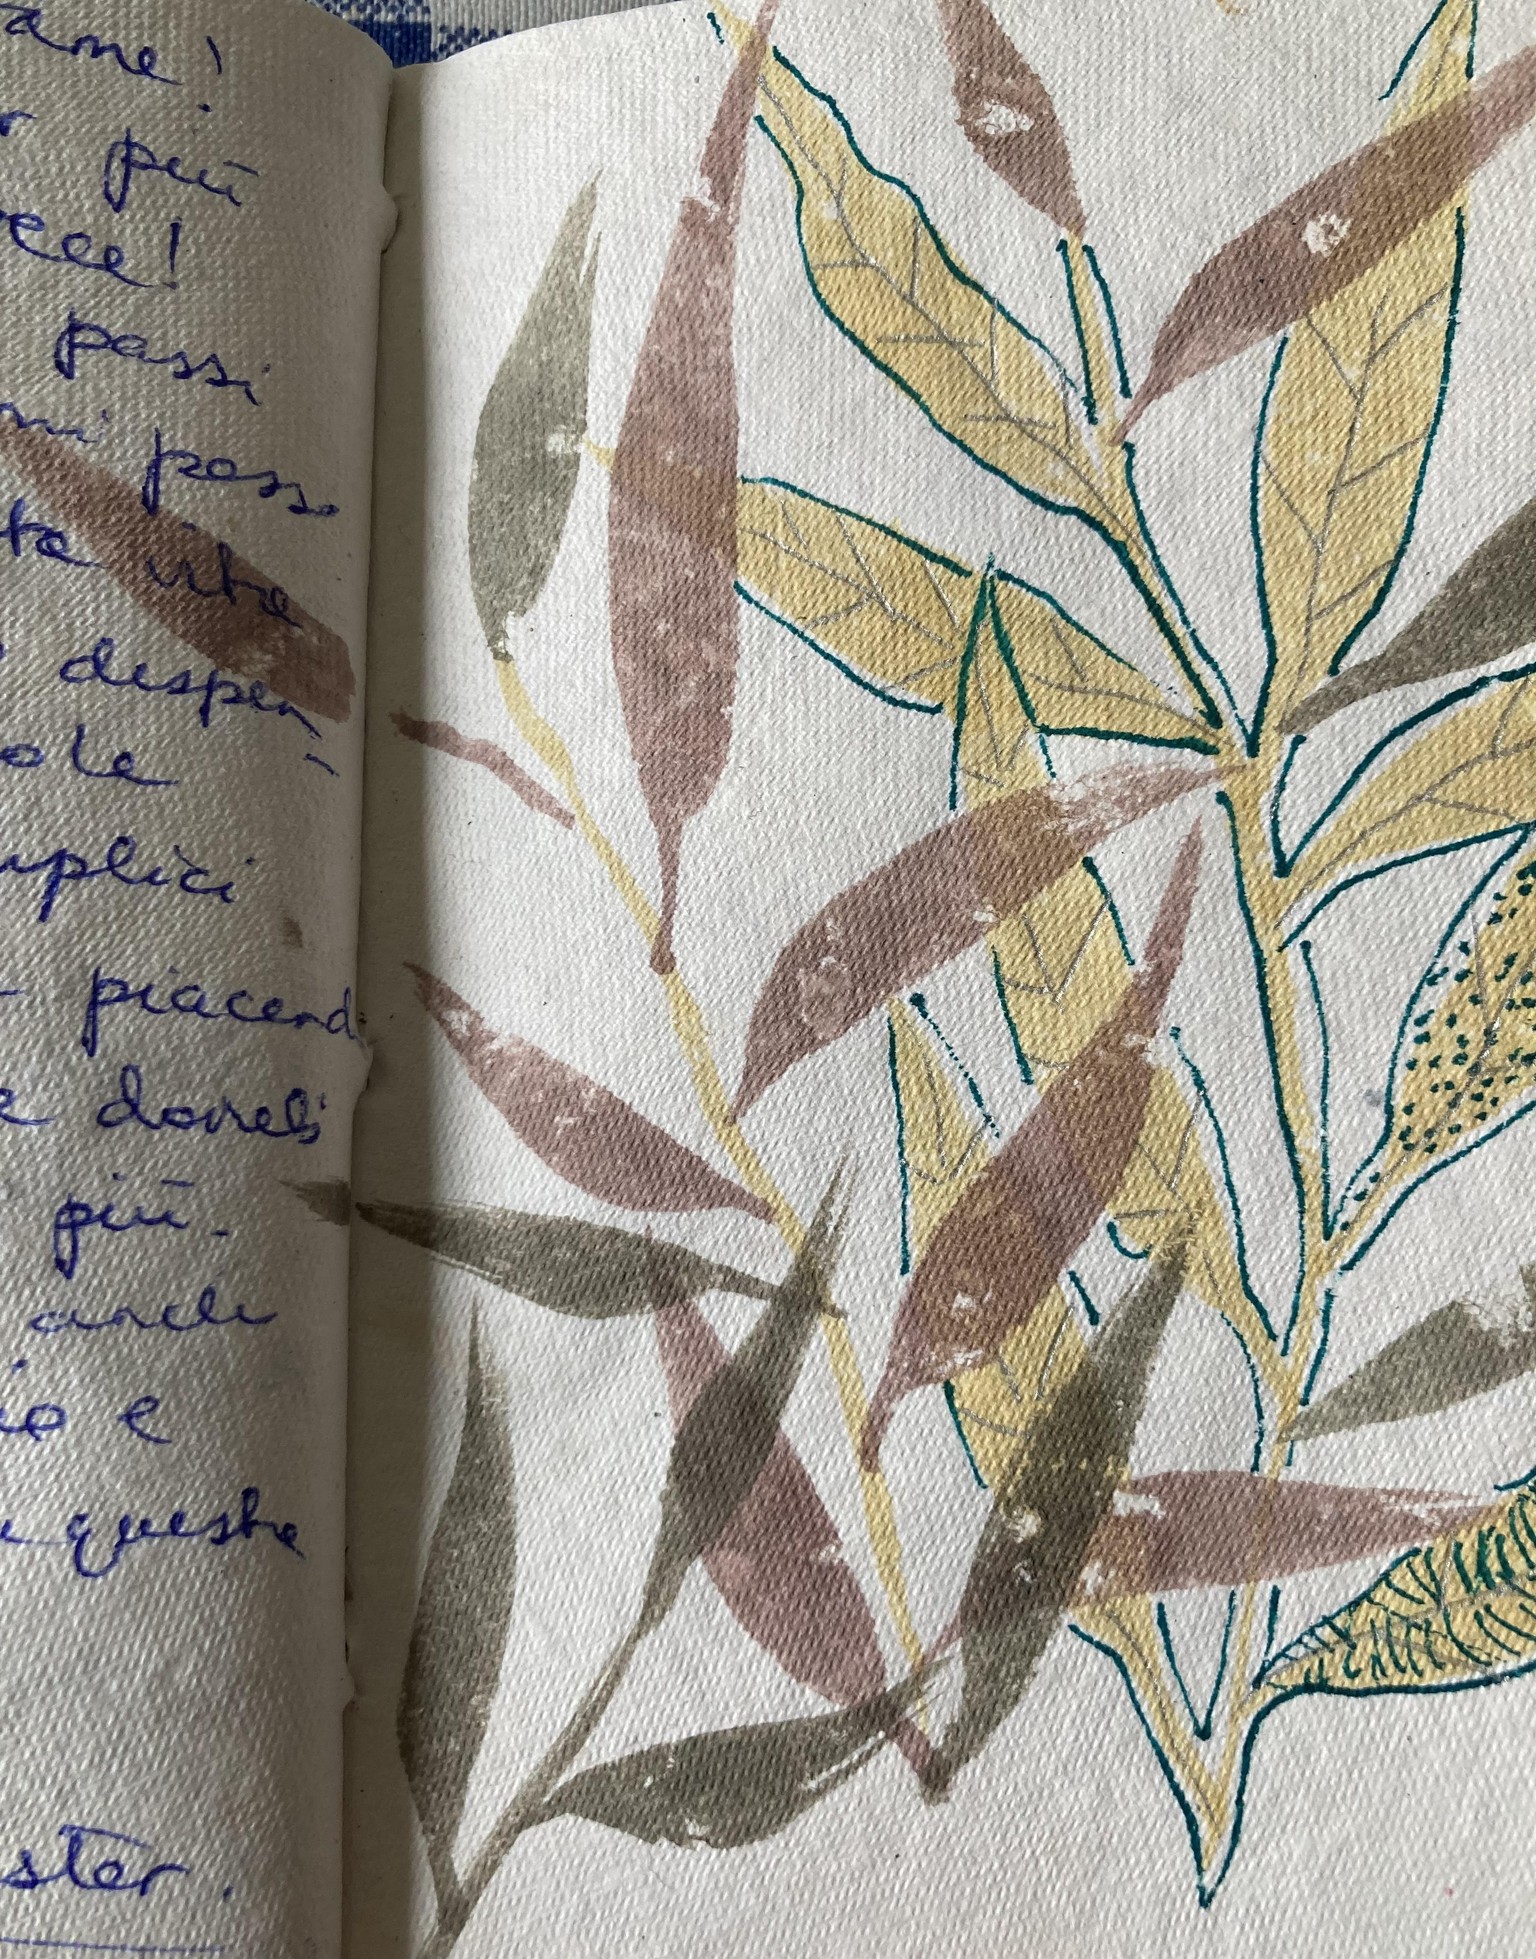 ame!
più
passi
mi posso
ta vita
despen-
ole
uplici
piacend
e doveli
più.
anch
io e
questa
ster.